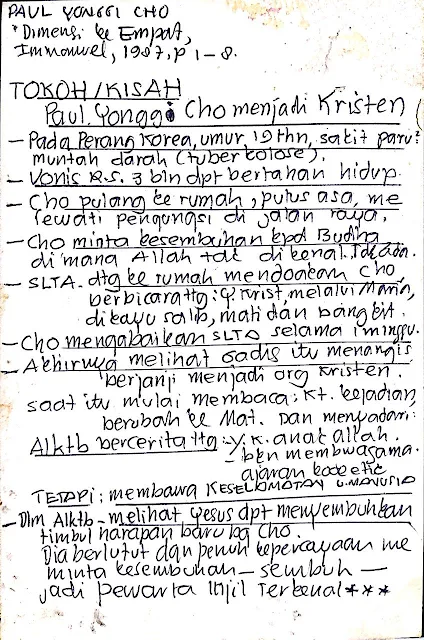 PAUL YONGGI CHO
"Dimensi ke Empat,
Immanuel, 1987, p 1-8.
TOKOH/KISAH
Paul Yonggi Cho menjadi Kristen
- Pada Perang Korea, umur 19 thn, sakit paru²
muntah darah (tuberkolose).
- Vonis R.S. 3 bln dpt bertahan hidup.
- Cho pulang ke rumah, putus asa, me
lewati pengungsi di jalan raya.
- Cho minta kesembuhan kpd Budha
dimana Allah tdk dikenal.
- SLTA. dtg ke rumah mendoakan Cho,
berbicara ttg: Y. Krist, melalui Maria,
dikayu salip, mati dan bangkit.
- Cho mengabaikan SLTA selama 1 minggu.
- Akhirnya melihat gadis itu menangis
berjanji menjadi org Kristen.
saat itu mulai membaca: Kt. Kejadian,
berubah ke Mat. Dan menyadari:
Alktb bercerita ttg - Y.K. anak Allah.
- bkn membwa agama.
ajaran kode etic
TETAPI: membawa KESELAMATAN U. MANUSIA
- Dlm Alktb - melihat Yesus dpt menyembuhkan
timbul harapan baru bg Cho.
Dia berlutut dan penuh kepercayaan me
minta kesembuhan - sembuh -
jadi pewarta Injil Terkenal ***